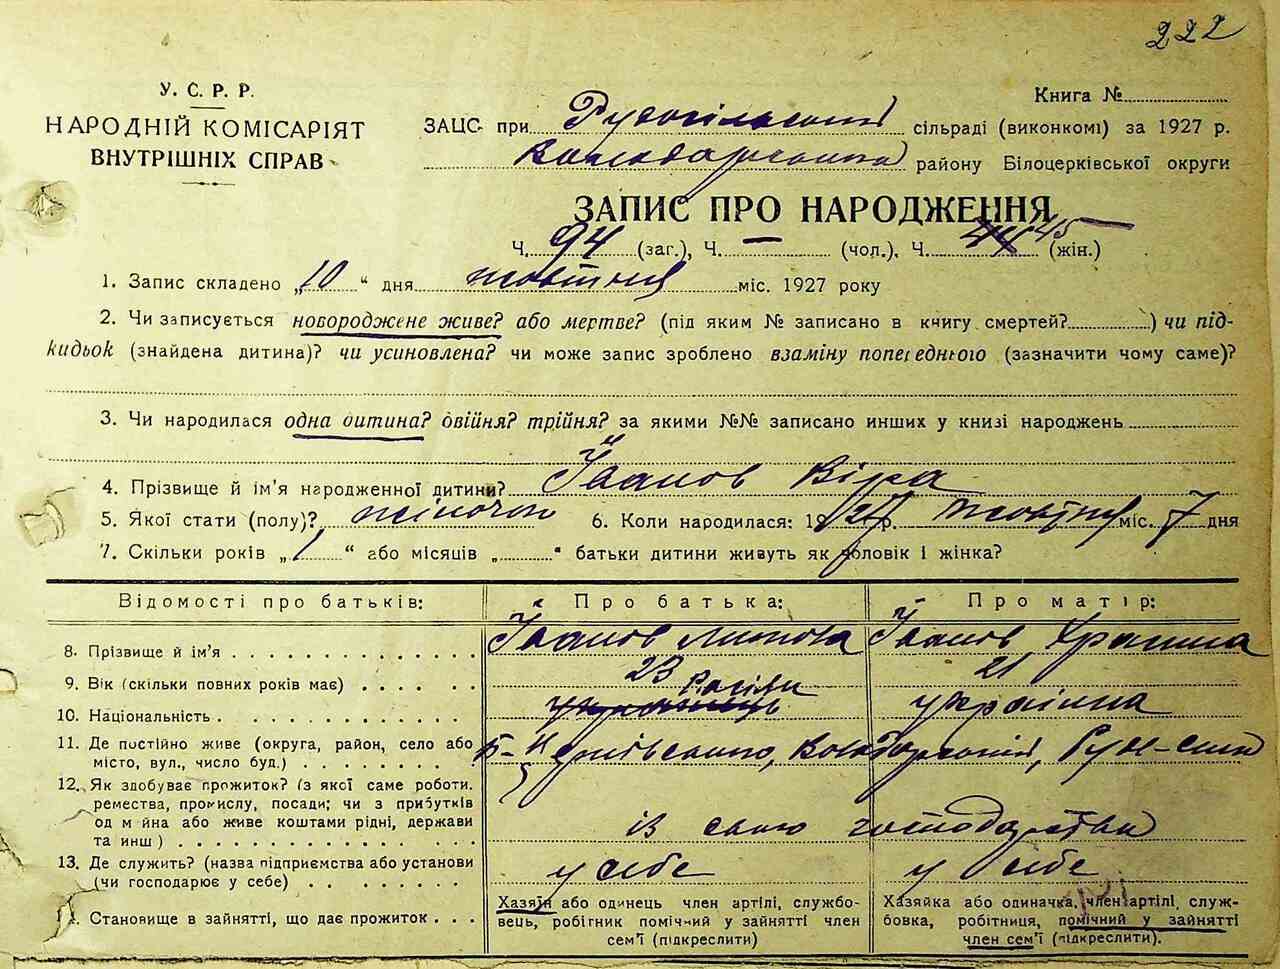 222
У. С. Р. Р.
НАРОДНІЙ КОМІСАРІЯТ
ВНУТРІШНІХ СПРАВ
Книга №
ЗАЦС при сільраді (виконкомі) за 1927 р.
району Білоцерківської округи
ЗАПИС ПРО НАРОДЖЕННЯ
Ч. 94 (заг.), Ч. — (чол.), Ч. 44 45 (жін.)
1. Запис складено „10“ дня жовтня міс. 1927 року
2. Чи записується новороджене живе? або мертве? (під яким № записано в книгу смертей? ) чи під-
кидьок (знайдена дитина)? чи усиновлена? чи може запис зроблено взаміну попереднього (зазначити чому саме)?
3. Чи народилася одна дитина? двійня? трійня? за якими №№ записано инших у книзі народжень
4. Прізвище й ім'я народженної дитини? Іванов Віра
5. Якої стати (полу)? жіночої 6. Коли народилася: 1927 р. жовтня міс. 7 дня
7. Скільки років „1“ або місяців „ “ батьки дитини живуть як чоловік і жінка?
Відомості про батьків: Про батька: Про матір:
8. Прізвище й ім'я Іванов Іванов
9. Вік (скільки повних років має) 23 21
10. Національність українець українка
11. Де постійно живе (округа, район, село або
місто, вул., число буд.)
12. Як здобуває прожиток? (з якої саме роботи.
ремества, промислу, посади; чи з прибутків
од майна або живе коштами рідні, держави
та инш) із свого господарства
13. Де служить? (назва підприємства або установи
(чи господарює у себе) у себе у себе
14. Становище в зайнятті, що дає прожиток
Хазяїн або одинець член артілі, службо-
вець, робігник помічний у зайнятті член
сем'ї (підкреслити)
Хазяйка або одиначка, член артілі, служ-
бовка, робітниця, помічний у зайнятті
член сем'ї (підкреслити).